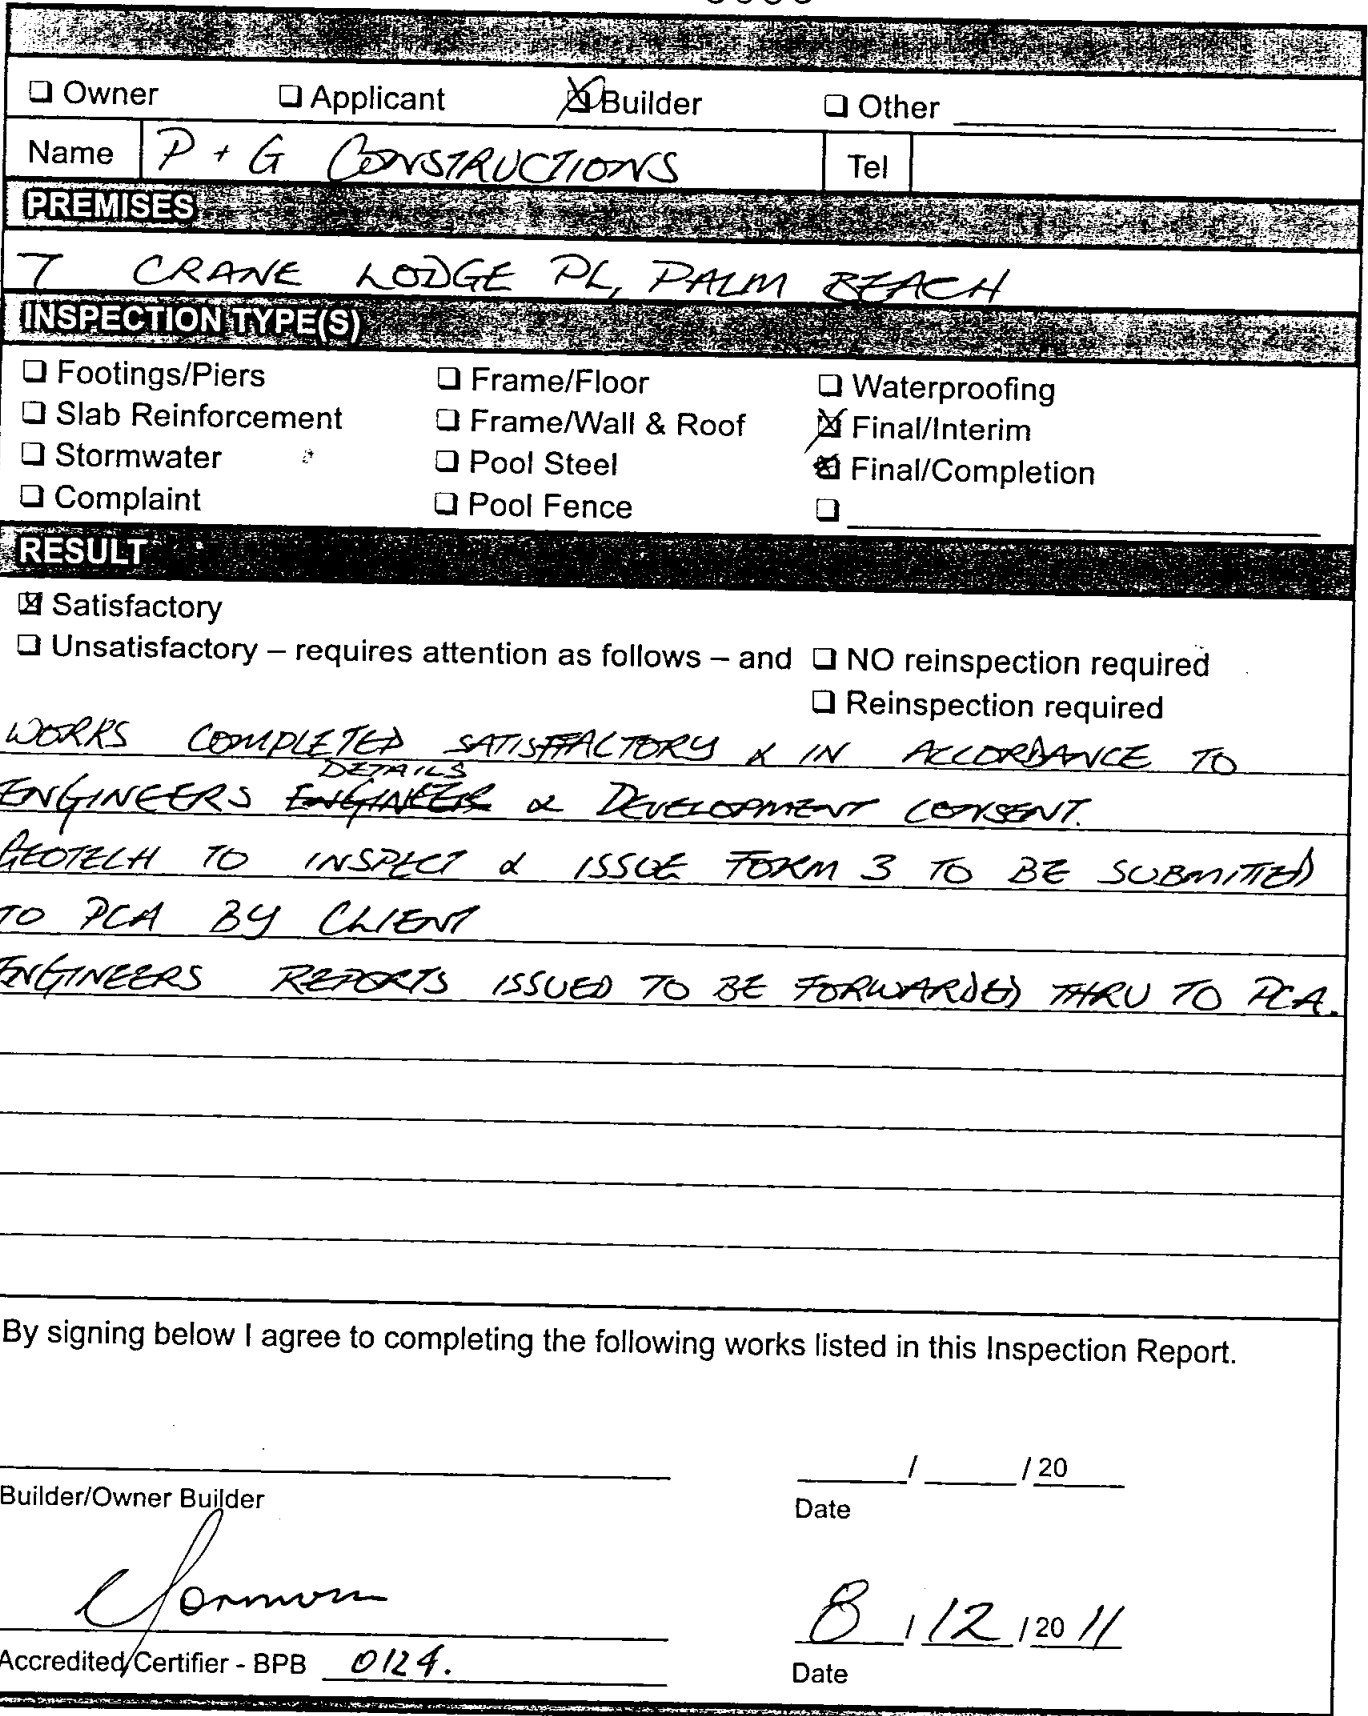 ☐ Owner ☐ Applicant ☒ Builder ☐ Other
Name P + G CONSTRUCTIONS Tel
PREMISES
7 CRANE LODGE PL, PALM BEACH
INSPECTION TYPE(S)
☐ Footings/Piers ☐ Frame/Floor ☐ Waterproofing
☐ Slab Reinforcement ☐ Frame/Wall & Roof ☒ Final/Interim
☐ Stormwater ☐ Pool Steel ☒ Final/Completion
☐ Complaint ☐ Pool Fence ☐
RESULT
☒ Satisfactory
☐ Unsatisfactory – requires attention as follows – and ☐ NO reinspection required
☐ Reinspection required
WORKS COMPLETED SATISFACTORY & IN ACCORDANCE TO
DETAILS
ENGINEERS ENGINEER & DEVELOPMENT CONSENT.
GEOTECH TO INSPECT & ISSUE FORM 3 TO BE SUBMITTED
TO PCA BY CLIENT
ENGINEERS REPORTS ISSUED TO BE FORWARDED THRU TO PCA.
By signing below I agree to completing the following works listed in this Inspection Report.
/ / 20
Builder/Owner Builder Date
8 / 12 / 20 11
Accredited Certifier - BPB 0124. Date